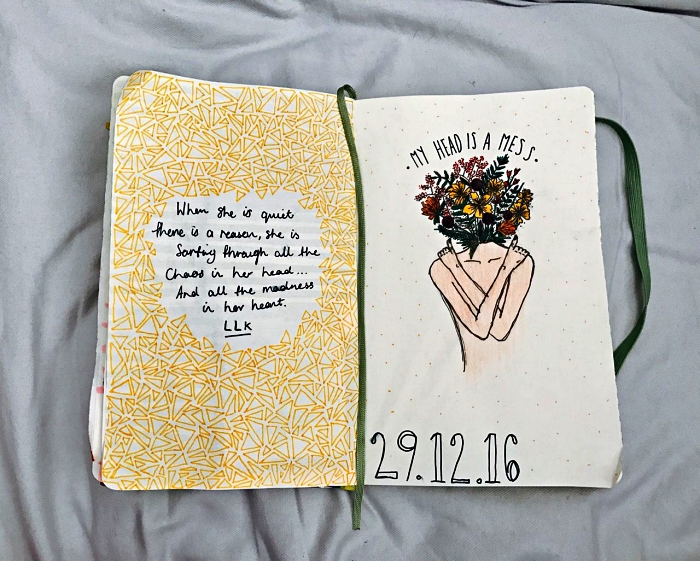 When she is quiet
there is a reason, she is
Sorting through all the
Chaos in her head...
And all the madness
in her heart.
LLK
·MY HEAD IS A MESS·
29.12.16